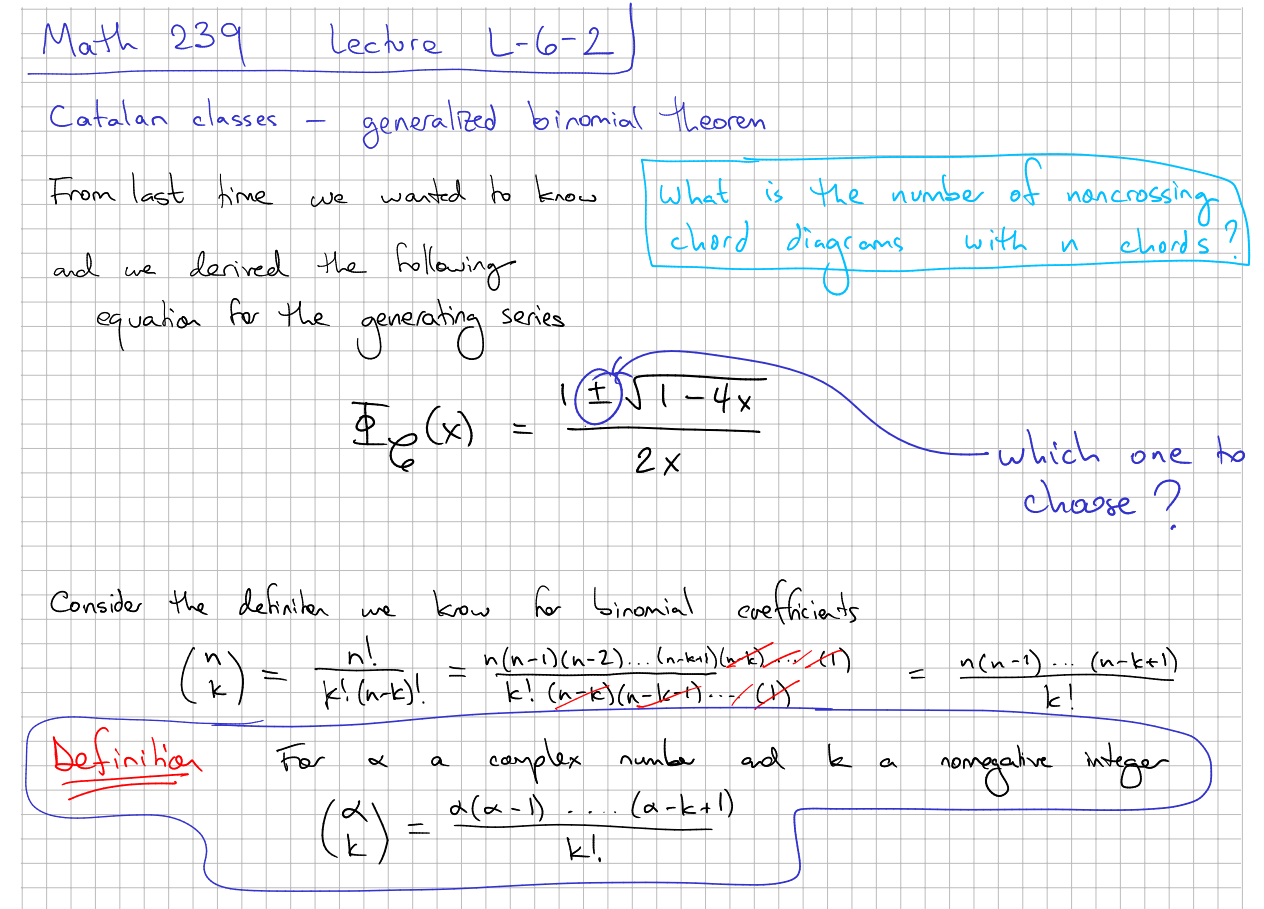 Math 239 Lecture L-6-2
Catalan classes – generalized binomial theoren
From last time we wanted to know
What is the number of noncrossing
chord diagrams with n chords?
and we derived the following
equation for the generating series
Φ_𝒞(x) = (1 ± √(1 − 4x)) / 2x
which one to
choose?
Consider the definiton we know for binomial coefficients
(n k) = n! / k!(n-k)! = n(n-1)(n-2)...(n-k+1)(n-k)...(1) / k!(n-k)(n-k-1)...(1) = n(n-1)...(n-k+1) / k!
Definition For α a complex number and k a nonnegative integer
(α k) = α(α-1).....(α-k+1) / k!